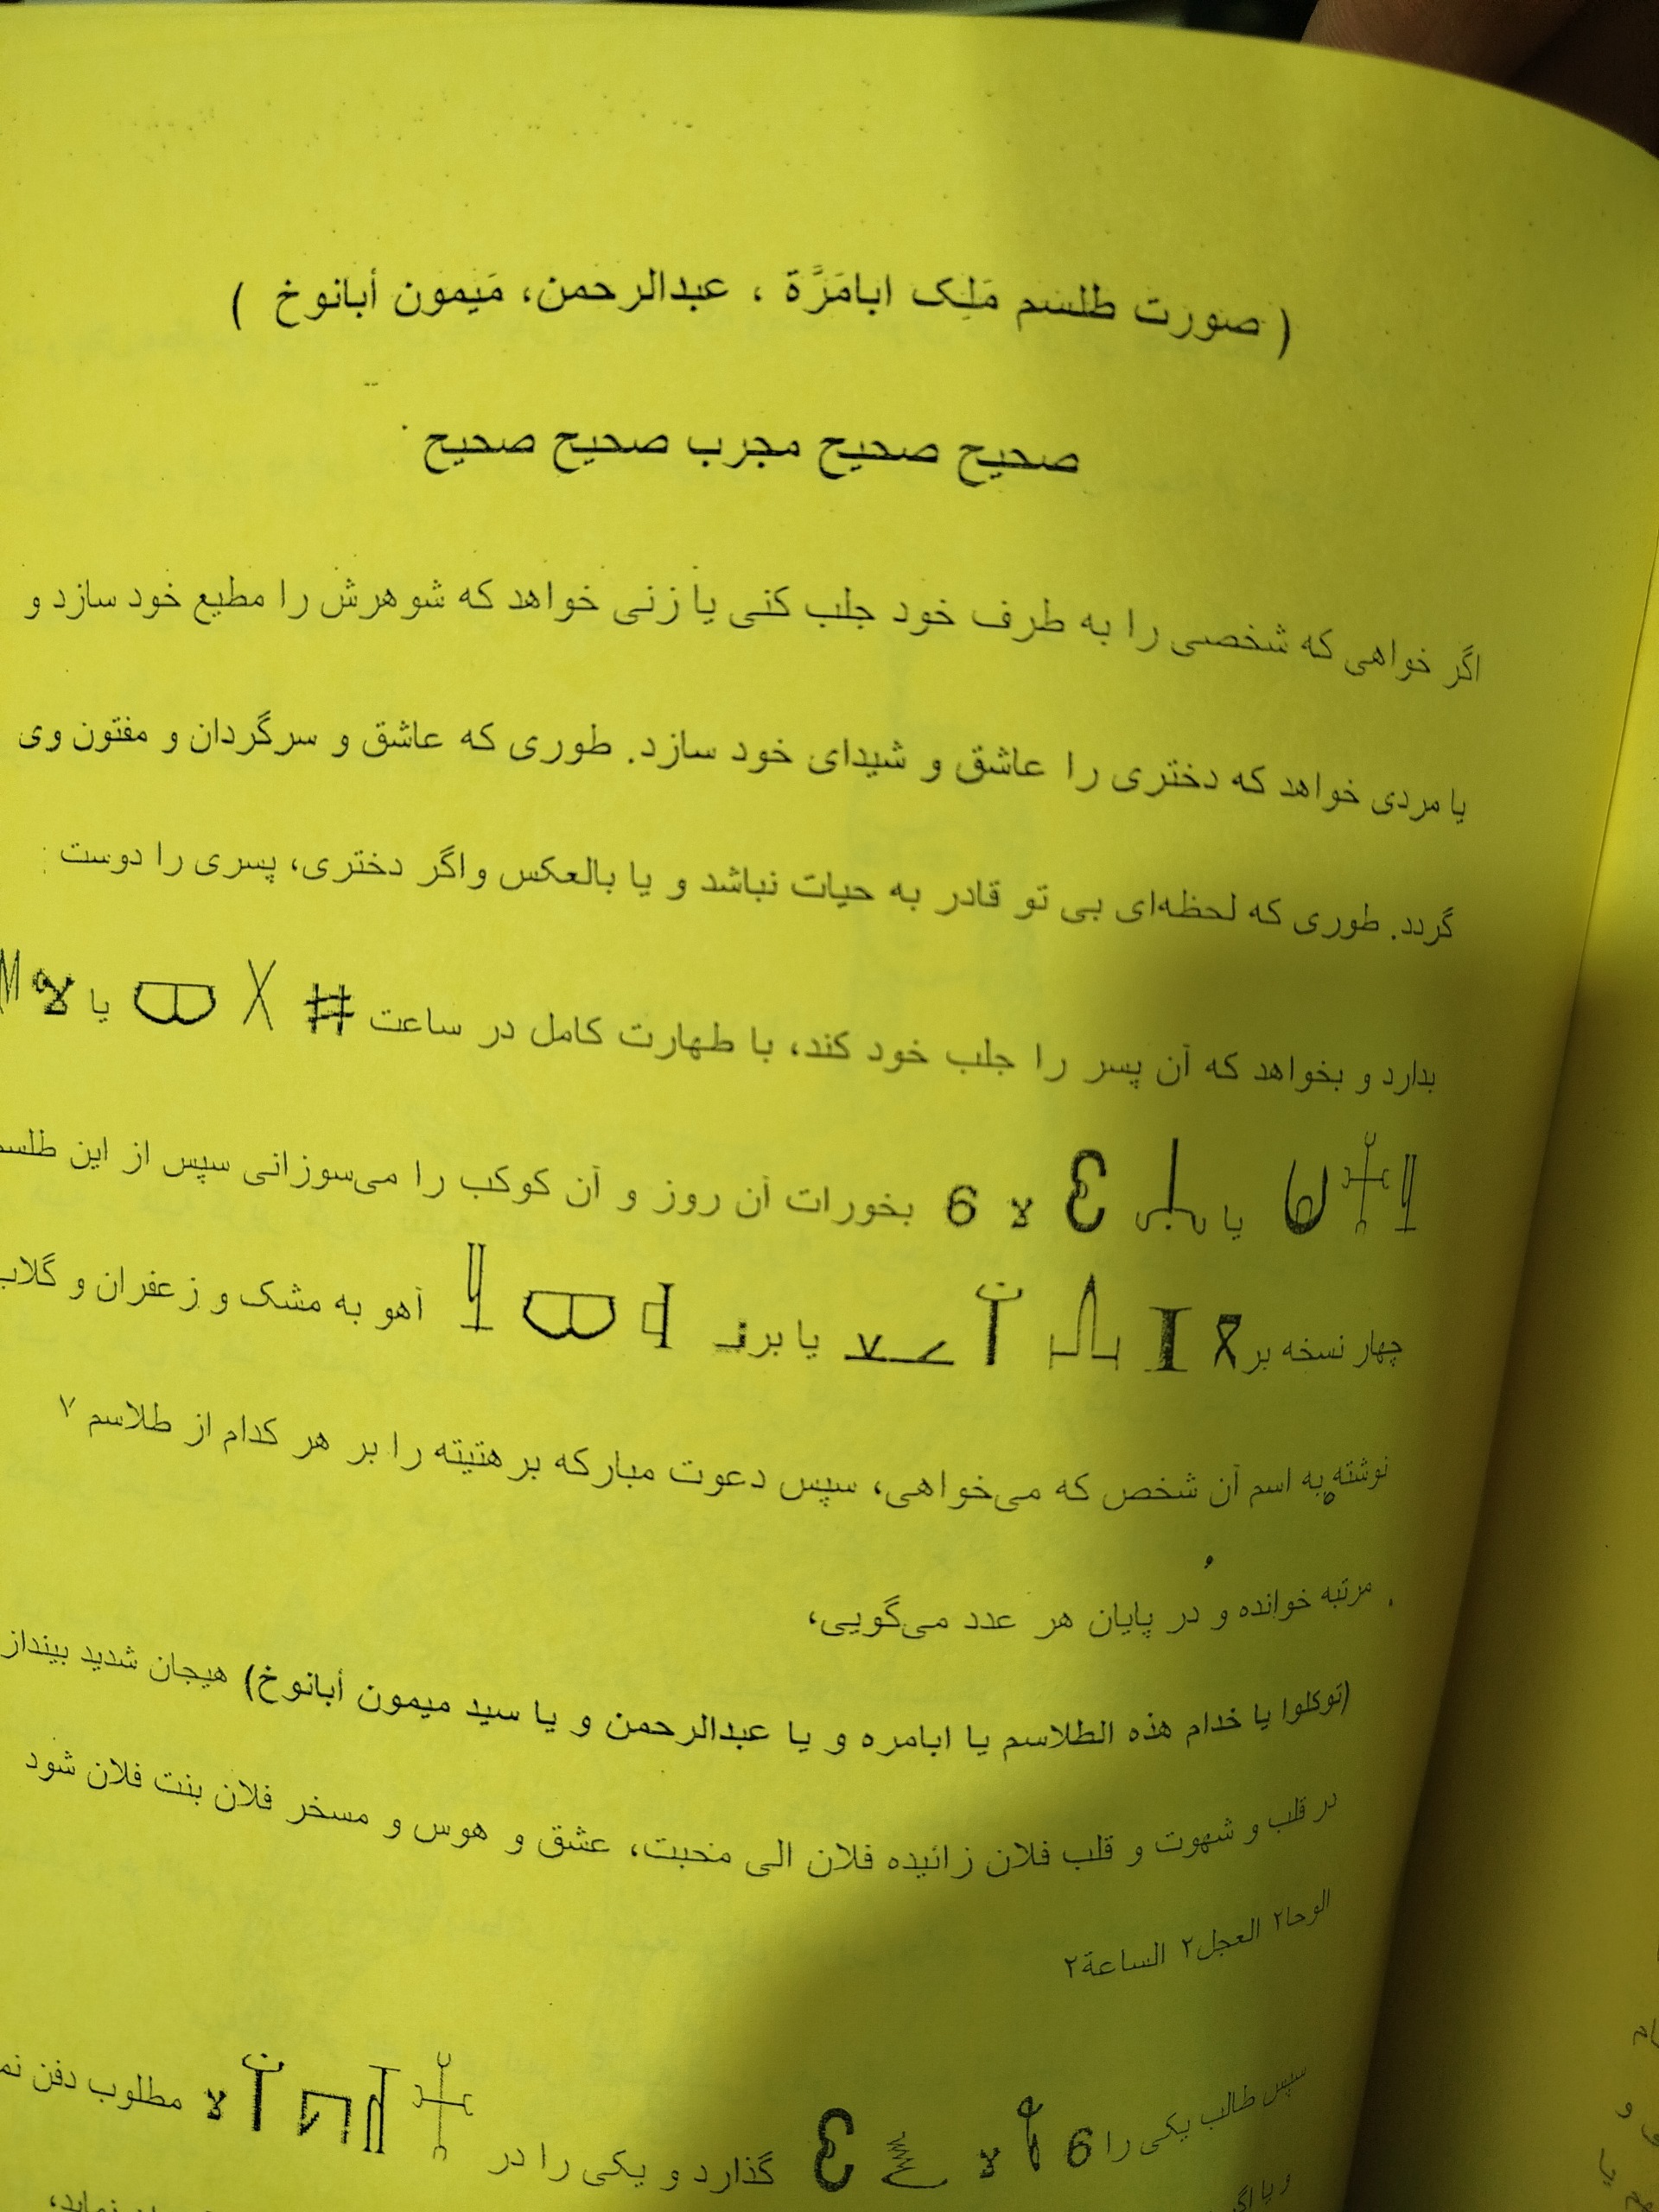 ( صورت طلسم مَلِک ابامَرَّة ، عبدالرحمن، مَیمون أبانوخ )
صحیح صحیح مجرب صحیح صحیح
اگر خواهی که شخصی را به طرف خود جلب کنی یا زنی خواهد که شوهرش را مطیع خود سازد و
یا مردی خواهد که دختری را عاشق و شیدای خود سازد. طوری که عاشق و سرگردان و مفتون وی
گردد. طوری که لحظه‌ای بی تو قادر به حیات نباشد و یا بالعکس واگر دختری، پسری را دوست
بدارد و بخواهد که آن پسر را جلب خود کند، با طهارت کامل در ساعت یا
یا بخورات آن روز و آن کوکب را می‌سوزانی سپس از این
چهار نسخه بر یا بر آهو به مشک و زعفران و گلاب
نوشته به اسم آن شخص که می‌خواهی، سپس دعوت مبارکه برهتیته را بر هر کدام از طلاسم ۷
مرتبه خوانده و در پایان هر عدد می‌گویی،
(توکلوا یا خدام هذه الطلاسم یا ابامره و یا عبدالرحمن و یا سید میمون أبانوخ) هیجان شدید
در قلب و شهوت و قلب فلان زائیده فلان الی محبت، عشق و هوس و مسخر فلان بنت فلان شود
الوحا۲ العجل۲ الساعة۲
سپس طالب یکی را گذارد و یکی را در مطلوب دفن
و یا اگر نماید،